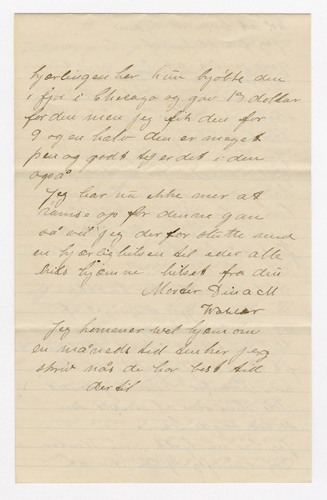 kjærlingen her hun kjøbte den
i fjor i Chicago og gav 13 dollar
for den men jeg fik den for
9 og en halv den er meget
pen og godt tøj er det i den
også
Jeg har nu ikke mer at
ramse op for denne gan
så vil jeg derfor slutte med
en kjærlig hilsen til eder alle
hjemme hilset fra din
Moster Dina M
Jeg kommer vel hjem om
en måneds tid her jeg
skriv når de har best tid
dertil